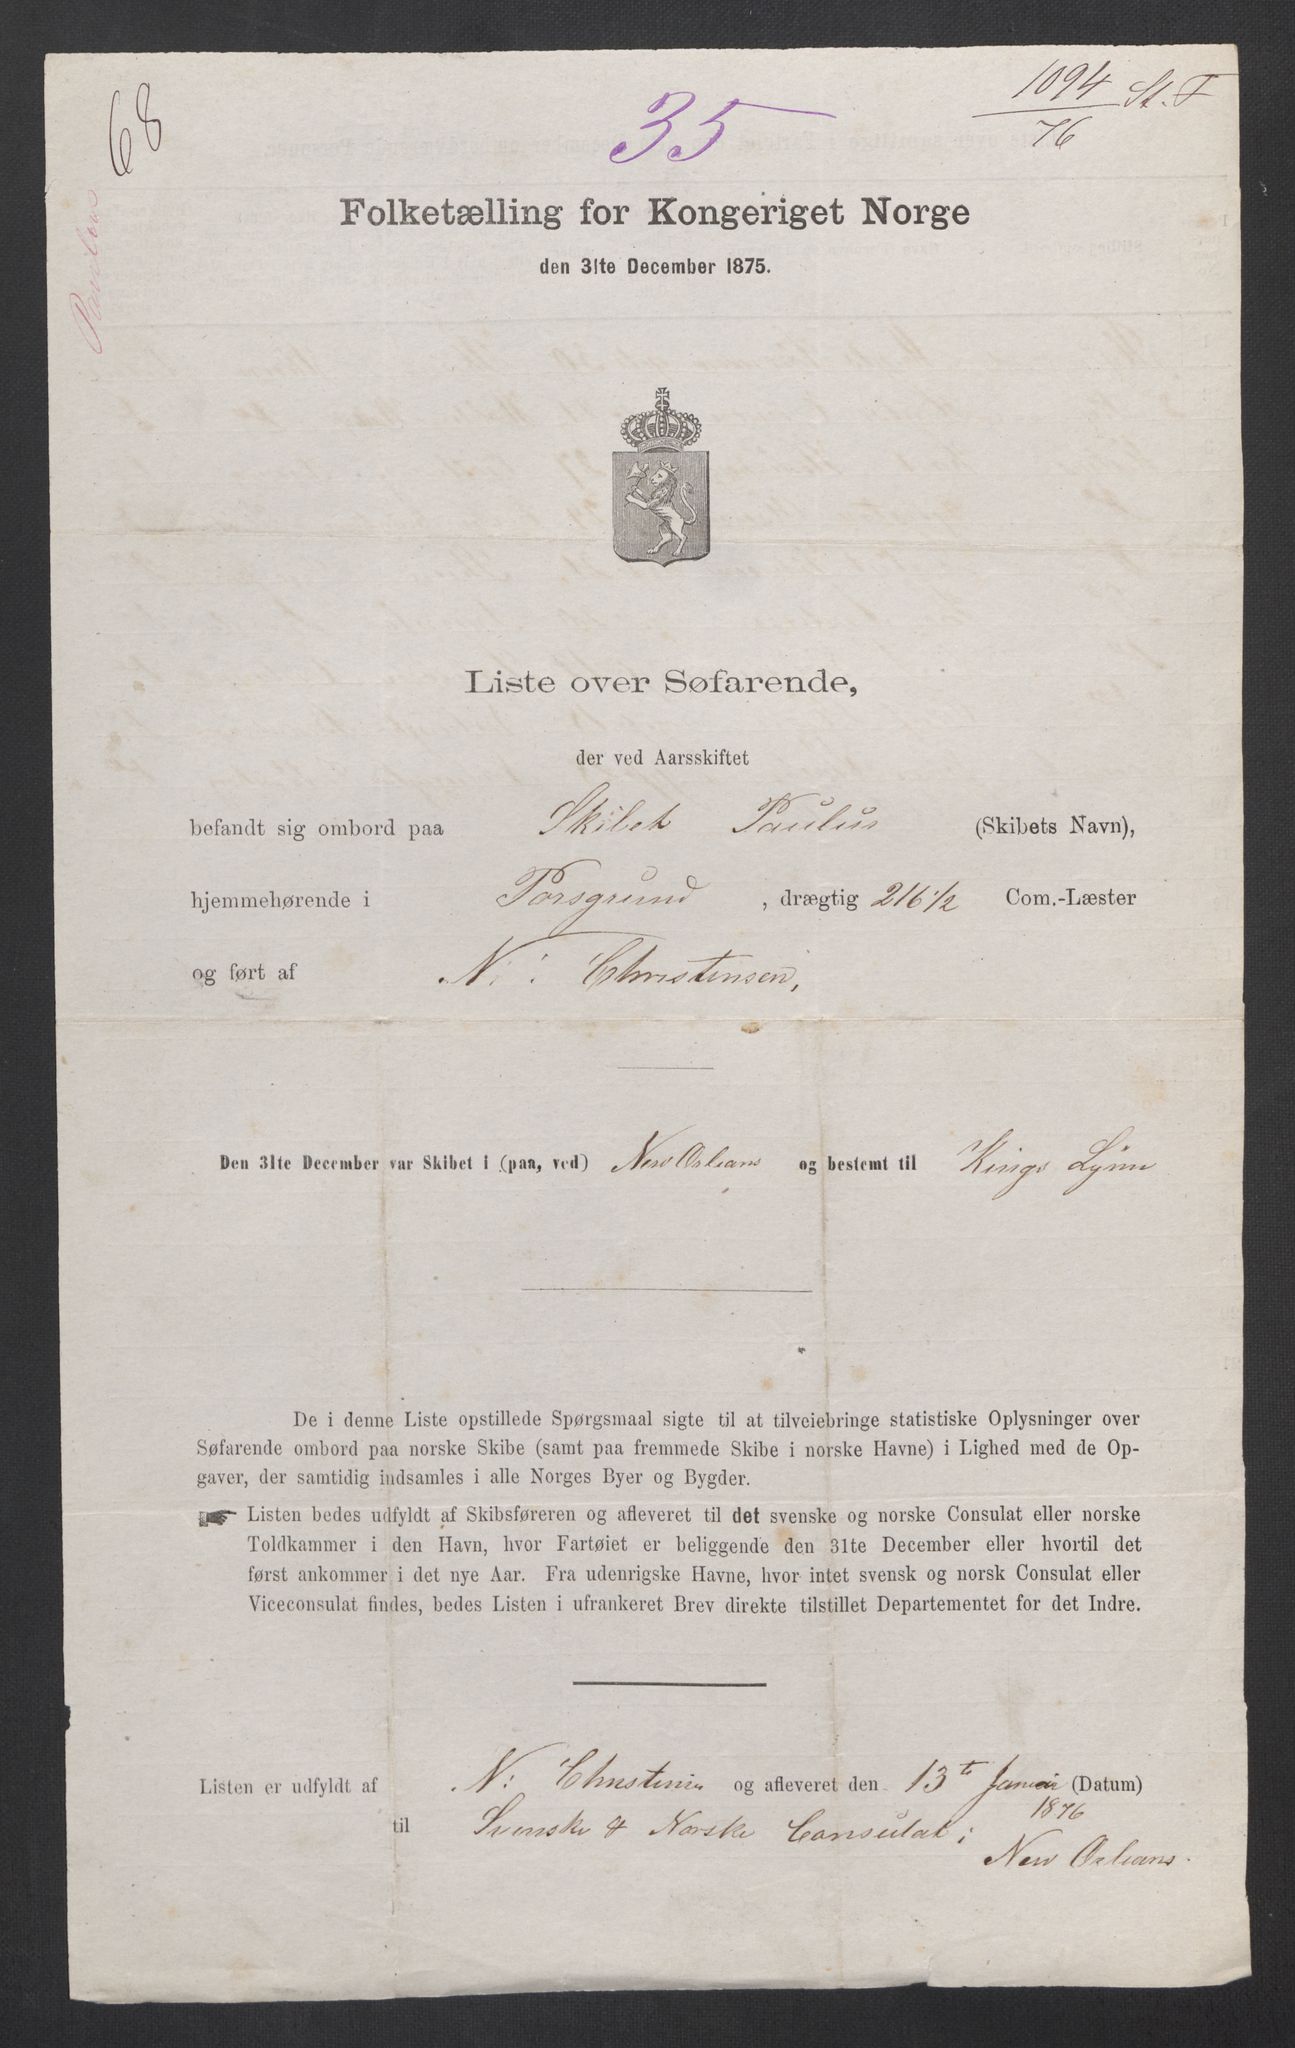 68
35
1094 St. F
76
Folketælling for Kongeriget Norge
den 31te December 1875.
Liste over Søfarende,
der ved Aarsskiftet
befandt sig ombord paa Skibet Paulus (Skibets Navn),
hjemmehørende i Porsgrund, drægtig 216 1/2 Com.-Læster
og ført af N: Christensen,
Den 31te December var Skibet i (paa, ved) New Orleans og bestemt til Kings Lynn
De i denne Liste opstillede Spørgsmaal sigte til at tilveiebringe statistiske Oplysninger over
Søfarende ombord paa norske Skibe (samt paa fremmede Skibe i norske Havne) i Lighed med de Op-
gaver, der samtidig indsamles i alle Norges Byer og Bygder.
☛ Listen bedes udfyldt af Skibsføreren og afleveret til det svenske og norske Consulat eller norske
Toldkammer i den Havn, hvor Fartøiet er beliggende den 31te December eller hvortil det
først ankommer i det nye Aar. Fra udenrigske Havne, hvor intet svensk og norsk Consulat eller
Viceconsulat findes, bedes Listen i ufrankeret Brev direkte tilstillet Departementet for det Indre.
Listen er udfyldt af N: Christensen og afleveret den 13te Januar (Datum)
1876
til Svenske & Norske Consulat i
New Orleans.